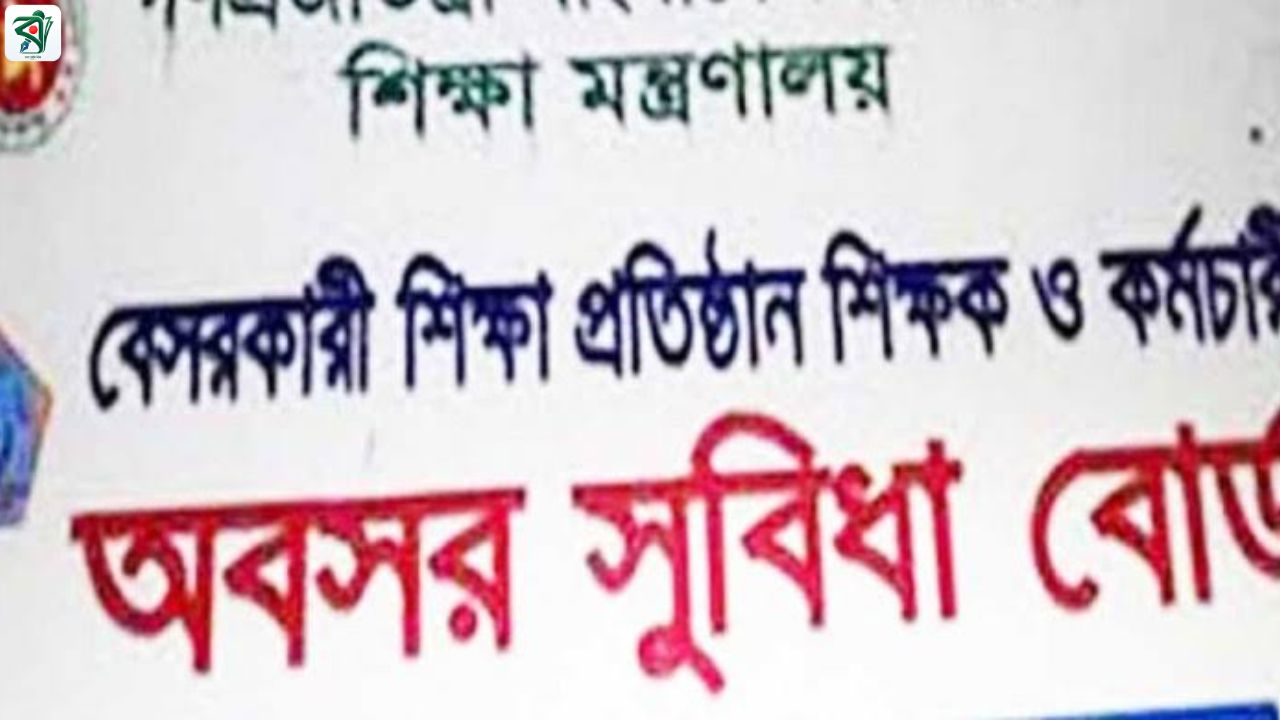 শিক্ষা মন্ত্রণালয়
বেসরকারী শিক্ষা প্রতিষ্ঠান শিক্ষক ও কর্মচারী
অবসর সুবিধা বোর্ড